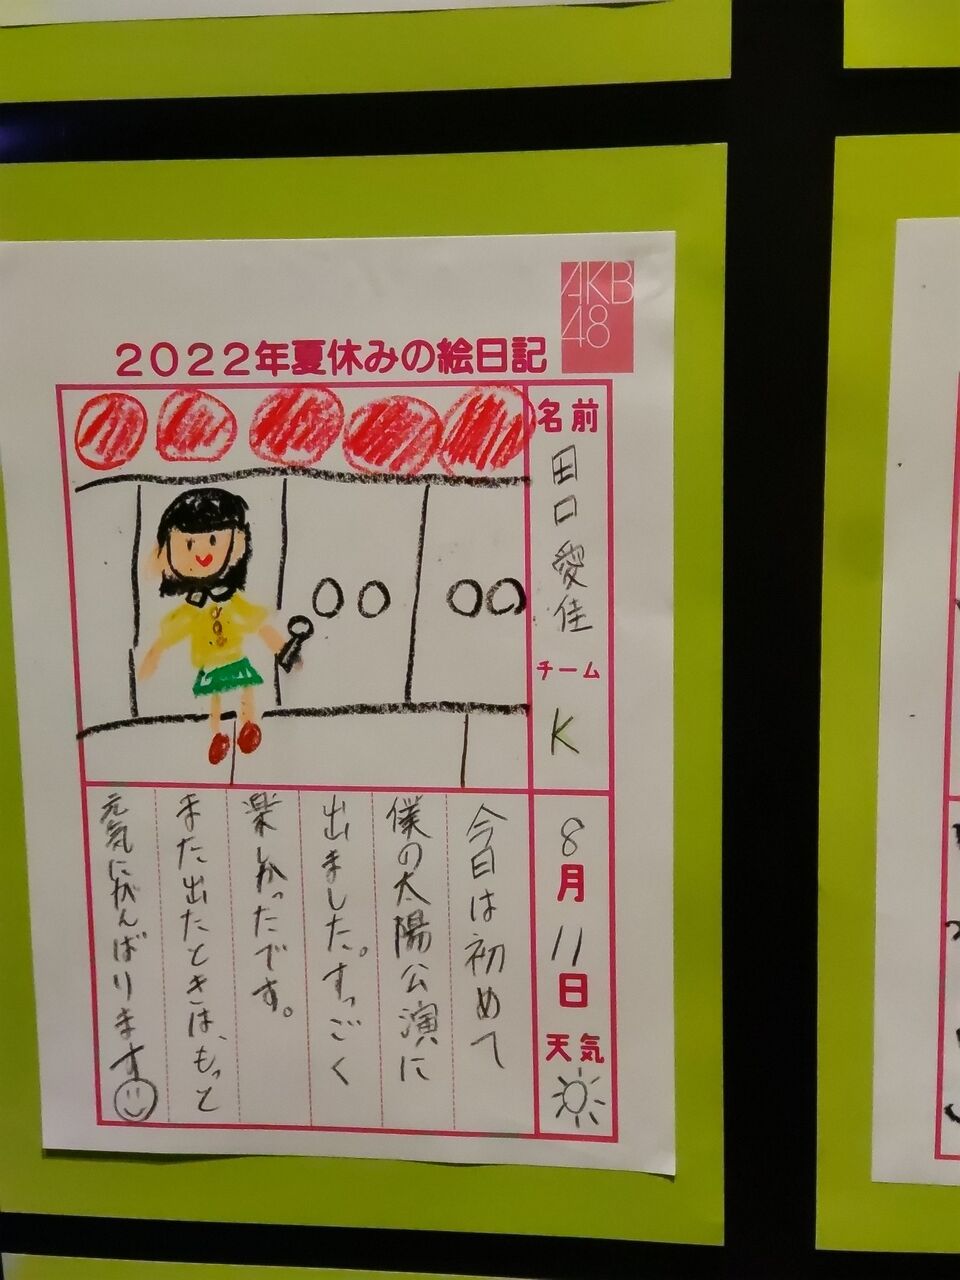 AKB
48
2022年夏休みの絵日記
名前
田口愛佳
チーム
K
8月11日
天気
今日は初めて
僕の太陽公演に
出ました。すっごく
楽しかったです。
また出たときは、もっと
元気にがんばります